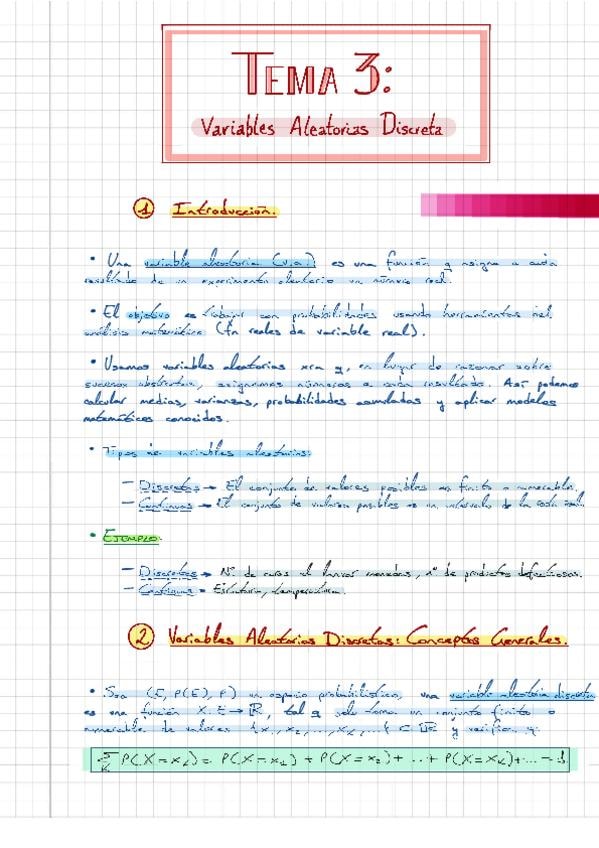 TEMA 3:
Variables Aleatorias Discreta
1 Introducción.
• Una variable aleatoria (v.a.) es una función q asigna a cada
resultado de un experimento aleatorio un número real.
• El objetivo es trabajar con probabilidades usando herramientas del
análisis matemático (fn reales de variable real).
• Usamos variables aleatorias xra q, en lugar de razonar sobre
sucesos abstractos, asignamos números a cada resultado. Así podemos
calcular medias, varianzas, probabilidades acumuladas y aplicar modelos
matemáticos conocidos.
• Tipos de variables aleatorias:
— Discretas → El conjunto de valores posibles es finito o numerable.
— Continuas → El conjunto de valores posibles es un intervalo de la recta real.
• EJEMPLO:
— Discretas → Nº de caras al lanzar monedas, nº de productos defectuosos.
— Continuas → Estatura, temperatura.
2 Variables Aleatorias Discretas: Conceptos Generales.
• Sea (E, P(E), P) un espacio probabilístico, una variable aleatoria discreta
es una función X: E → ℝ, tal q solo toma un conjunto finito o
numerable de valores {x₁, x₂, ..., xₖ, ...} ⊂ ℝ y verifica q:
∑ₖ P(X = xₖ) = P(X = x₁) + P(X = x₂) + ... + P(X = xₖ) + ... = 1